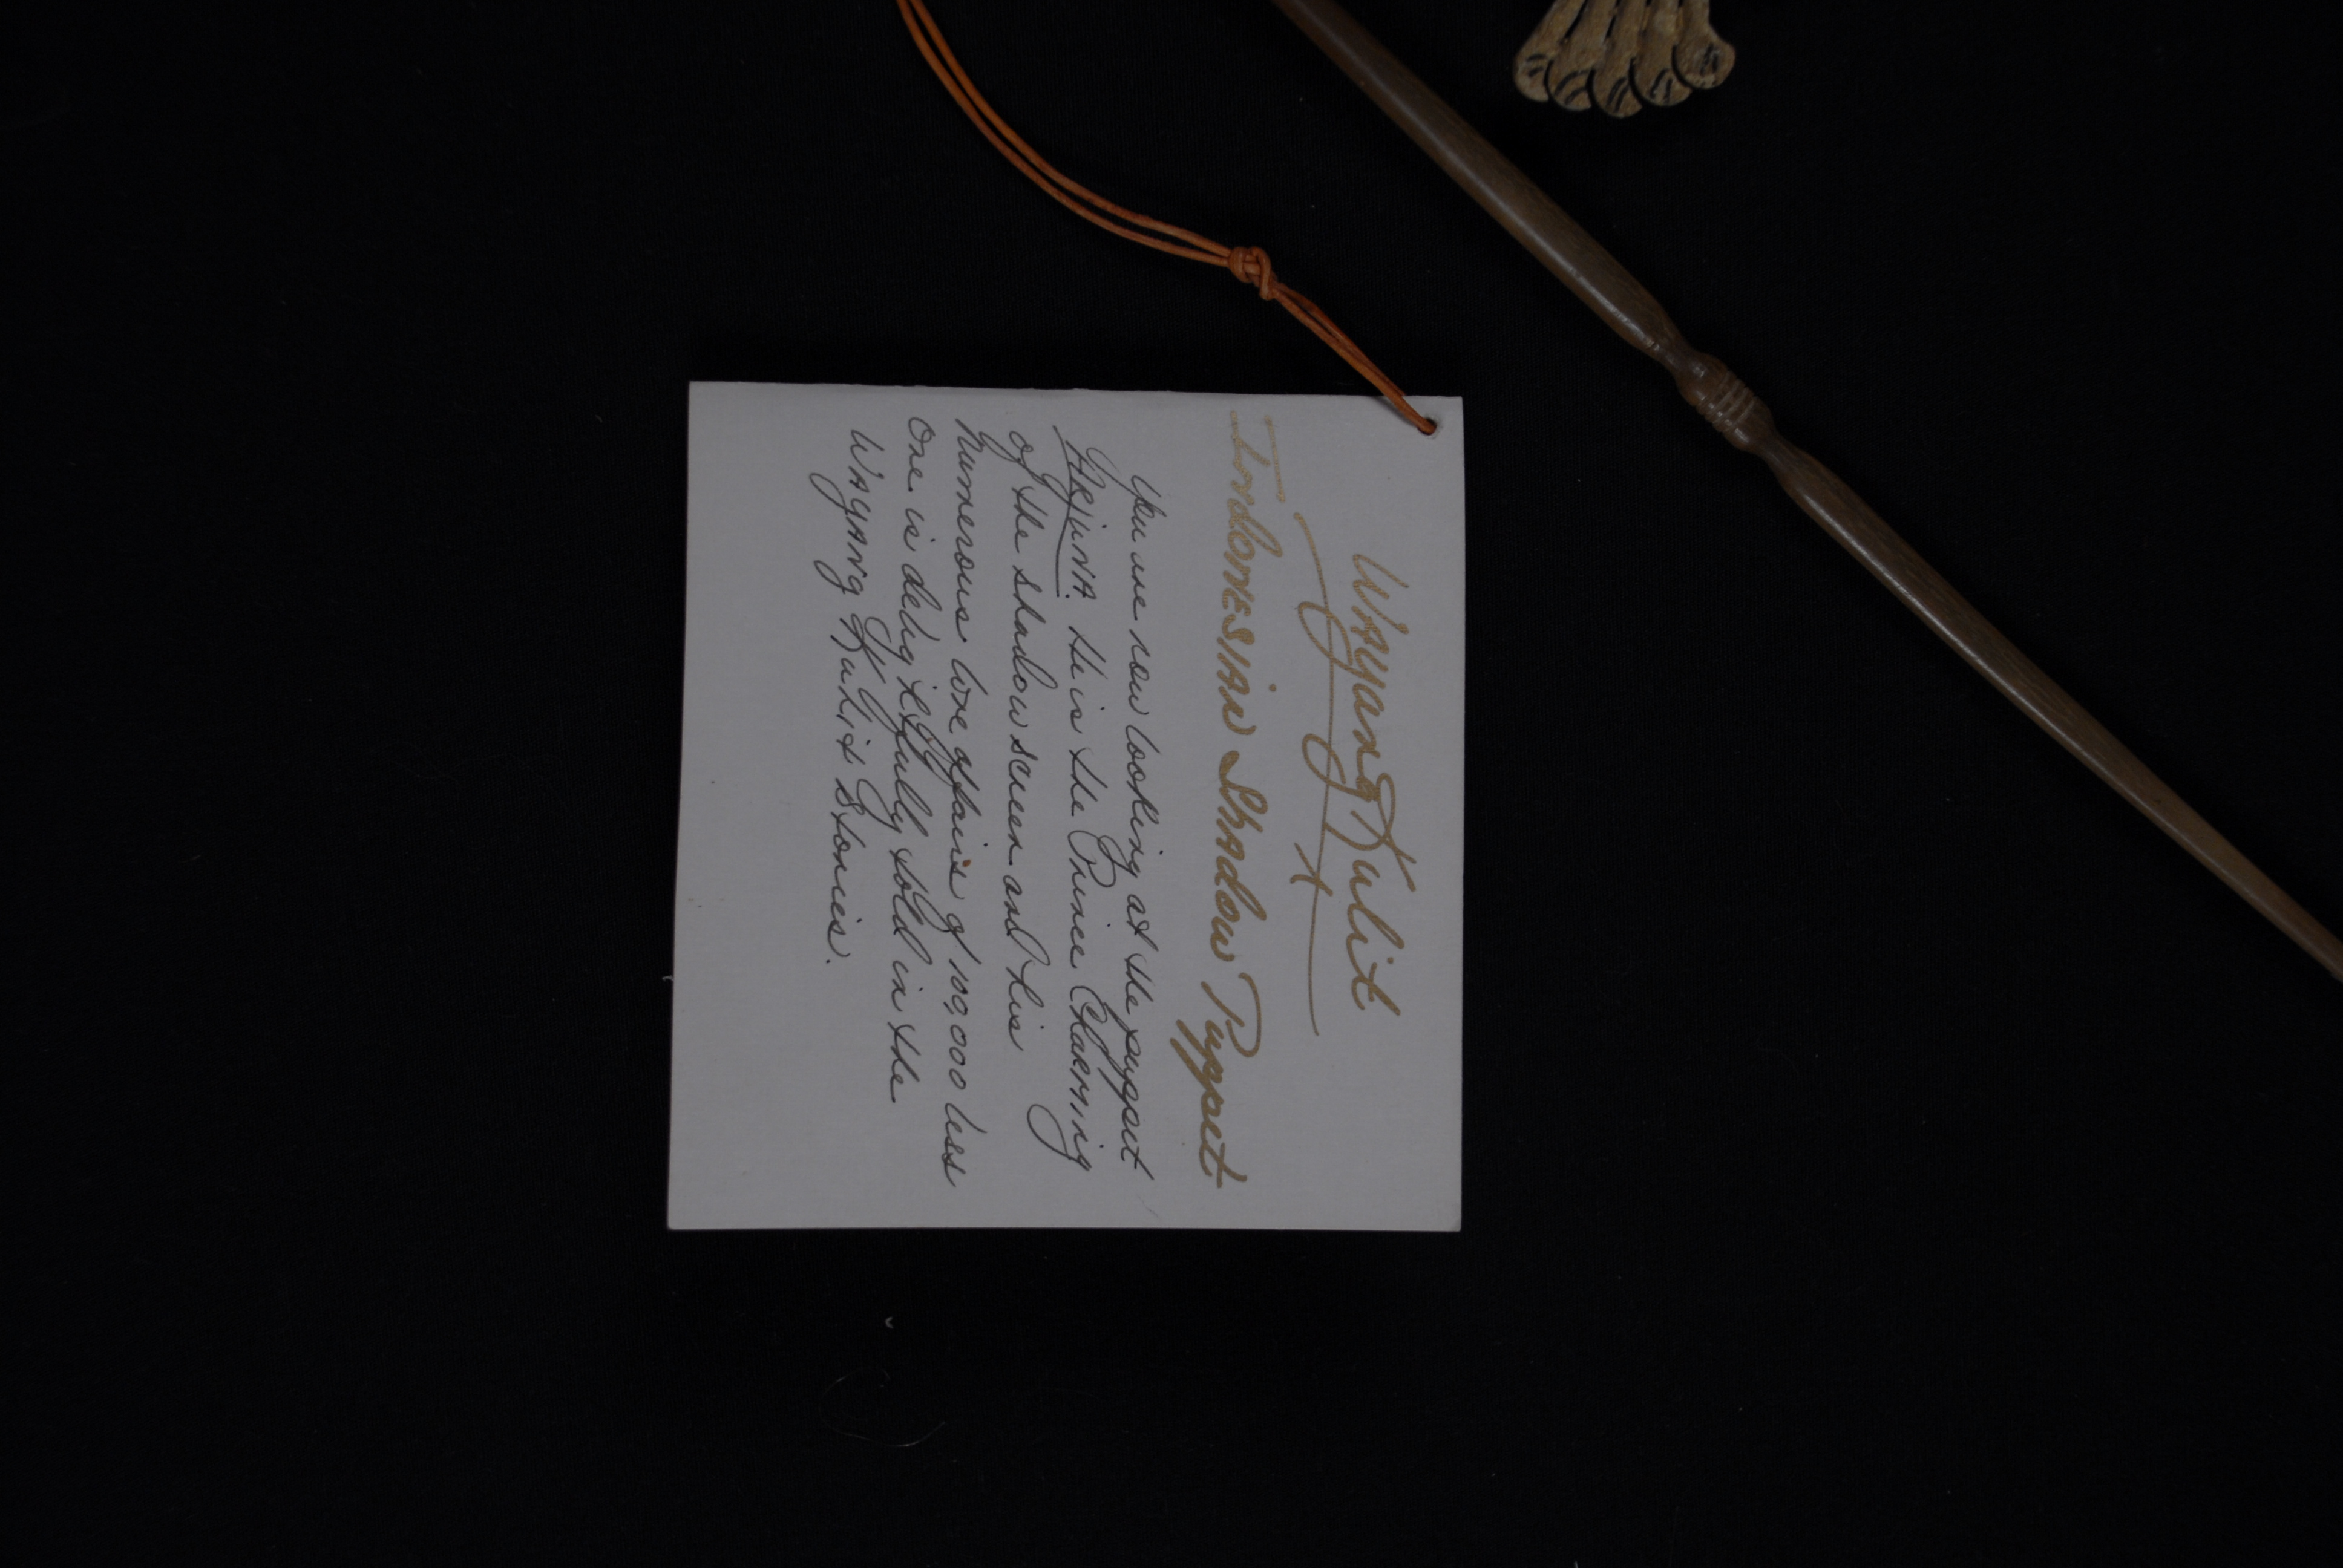 Wayang Kulit
Indonesian Shadow Puppet
You are now looking at the puppet
Arjuna. He is the Prince Charming
of the shadow screen and his
numerous love affairs of 100,000 less
one is delightfully told in the
Wayang Kulit stories.